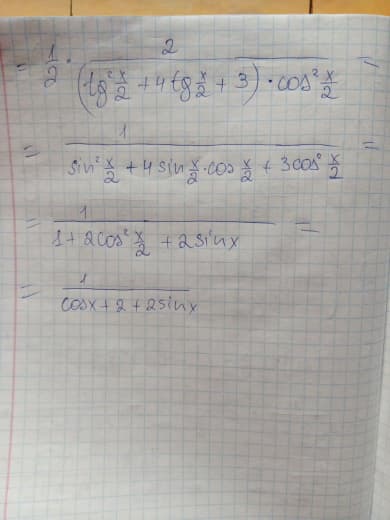 = 1/2 · 2/((tg² x/2 + 4tg x/2 + 3) · cos² x/2) =
= 1/(sin² x/2 + 4 sin x/2 · cos x/2 + 3cos² x/2) =
= 1/(1 + 2cos² x/2 + 2sinx) =
= 1/(cosx + 2 + 2sinx)